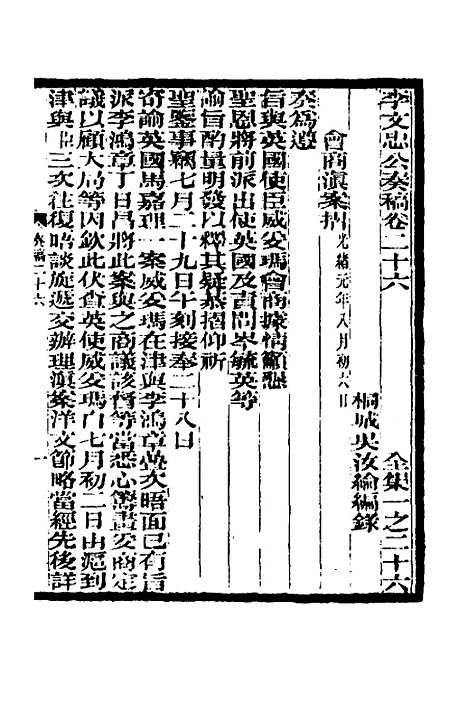 李文忠公奏稿卷二十六 全集一之二十六
桐城吳汝綸編錄
會商滇案摺 光緒元年八月初六日
奏為遵
旨與英國使臣威妥瑪會商據情籲懇
聖恩將前派出使英國及責問岑毓英等
諭旨酌量明發以釋其疑恭摺仰祈
聖鑒事竊七月二十九日午刻接奉二十八日
寄諭英國馬嘉理一案威妥瑪在津與李鴻章疊次晤面已有旨
派李鴻章丁日昌將此案與之商議該督等當悉心籌畫妥商定
議以顧大局等因欽此伏查英使威妥瑪自七月初二日由滬到
津與臣三次往復晤談旋遞交辦理滇案洋文節略當經先後詳
奏稿二十六 一